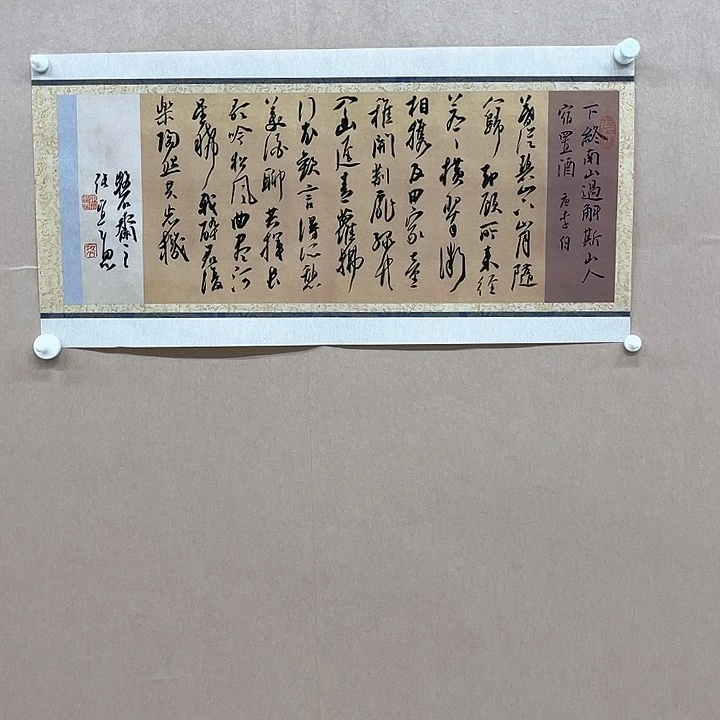 下終南山過斛斯山人
宿置酒 唐李白
暮從碧山下山月隨
人歸却顧所来徑
蒼〻橫翠微
相攜及田家童
稚開荆扉綠竹
入幽逕青蘿拂
行衣歡言得所憩
美酒聊共揮長
歌吟松風曲尽河
星稀我醉君復
樂陶然共忘機